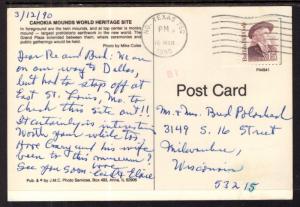 3/12/90
CAHOKIA MOUNDS WORLD HERITAGE SITE
In the foreground are twin mounds, and at top center is monks
mound - largest prehistoric earthwork in the new world. The
Grand Plaza extended between them, where ceremonies and
public gatherings would be held.
Photo by Mike Coles
Dear Pee and Bud: We are
on our way to Dallas,
but had to stop off at
East St. Louis, Mo. to
check this site out!!
It certainly is interesting
Worth your while too
Have Casey and his wife
been to this museum?
See you soon love
Pub. & © by J.M.C. Photo Services, Box 493, Anna, IL 62906
NO. TEXAS, TX
PM
16 MAR
1990
USA 15
Buffalo Bill Cody
PM4B41
Post Card
Mr. & Mrs. Bud Poloshad
3149 S. 16 Street
Milwaukee,
Wisconsin
53215